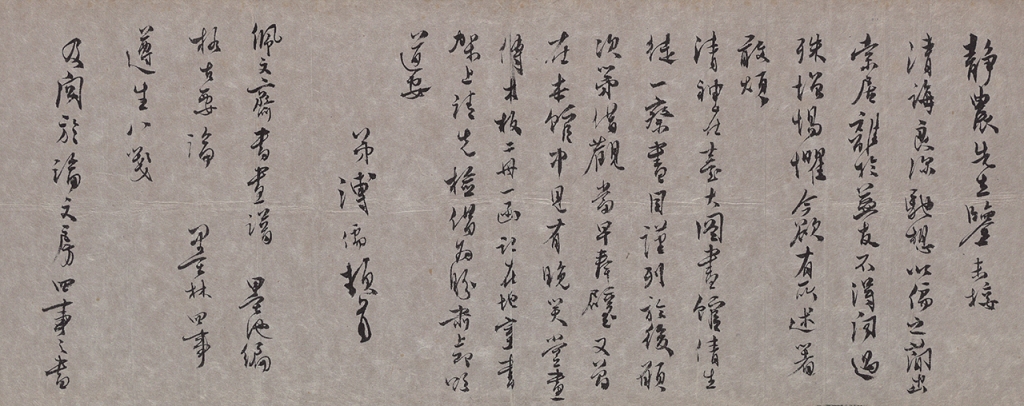 靜農先生鑒未接
清誨良深馳想以儒之簡出
索居離於益友不得聞過
殊增惕懼今欲有所述著
敢煩
清神在臺大圖書館倩生
徒一察書目謹列於後願
次第借觀當早奉璧又前
在本館中見有晚笑堂畫
傳木板二冊一函記在地室書
架上請先檢借為盼肅即頌
道安
弟溥儒頓首
佩文齋書畫譜 墨池編
格古要論 墨林四事
遵生八箋
及關於論文房四事之書